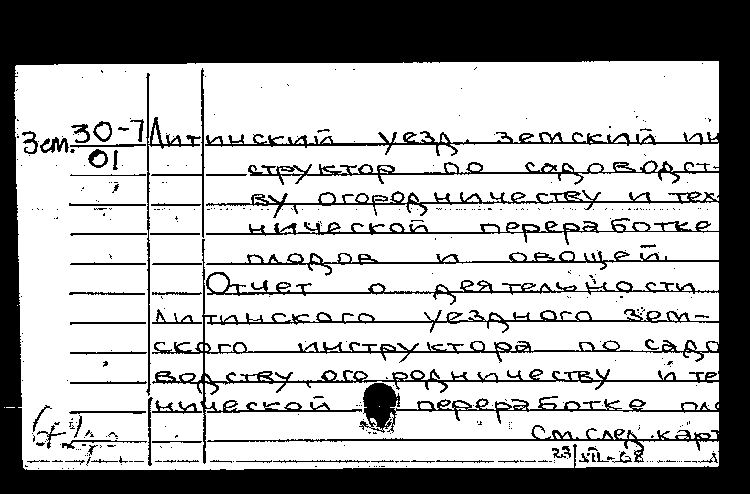 Зем. 30-7 Литинский уезд. земский ин
01 структор по садоводст-
ву, огородничеству и тех
нической переработке
плодов и овощей.
Отчет о деятельности
Литинского уездного зем-
ского инструктора по садо
водству, огородничеству и те
нической переработке пло
См. след. карт
23/XII-68